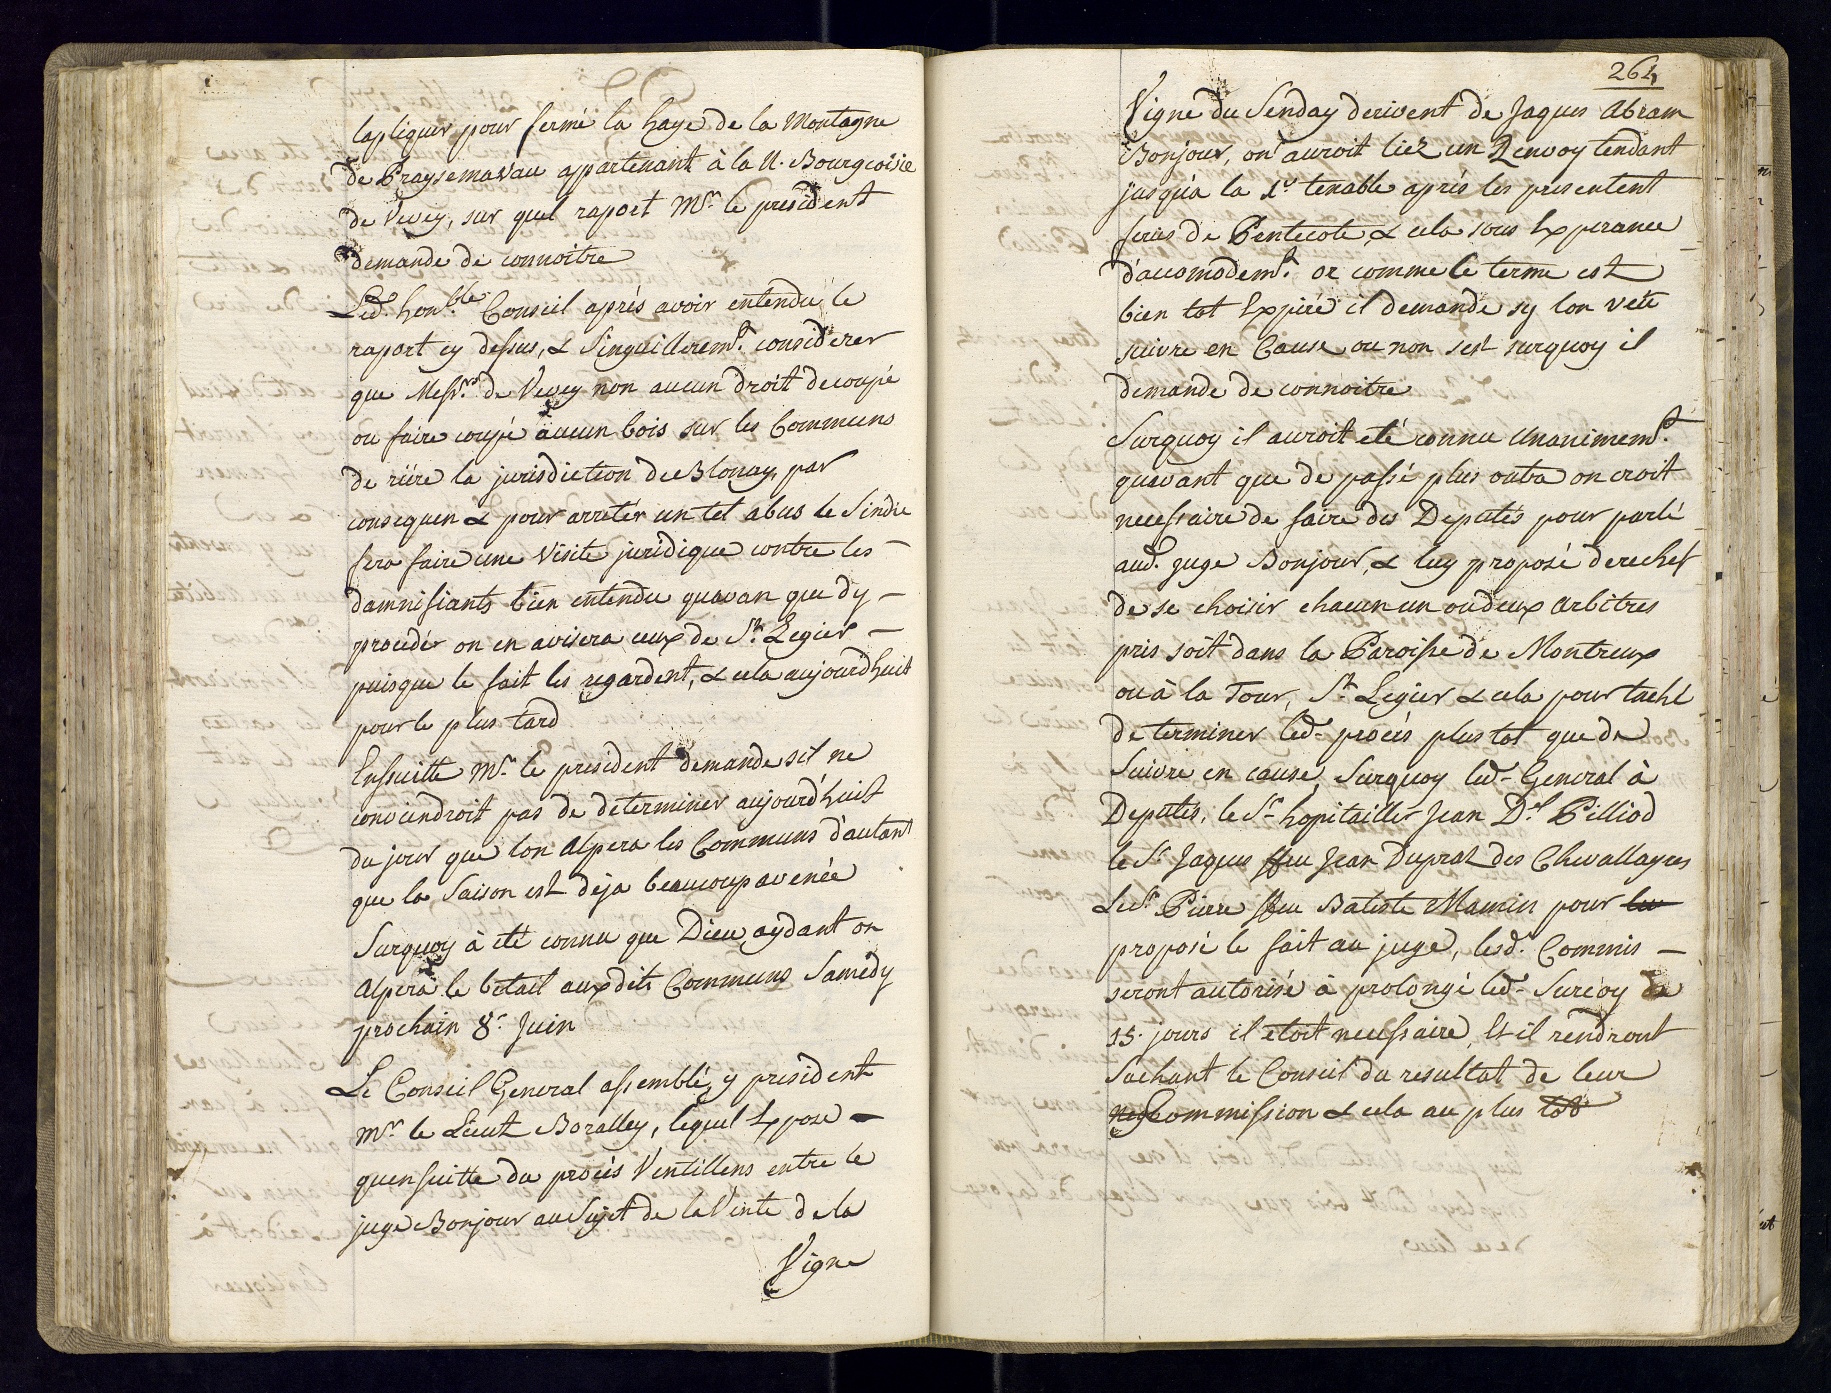 lapliquer pour fermé la haye de la Montagne
de Praysemavau appartenant à la N. Bourgeoisie
de Vevey, sur quel raport Mr. le president
demande de connoitre
Led. honble. Conseil aprés avoir entendu le
raport cy dessus, & Singuilleremt. considerer
que Messrs. de Vevey non aucun droit de coupé
ou faire coupé aucun bois sur les Communs
de riére la jurisdiction de Blonay, par
consequen & pour arretér un tel abus le Sindic
fera faire une visite juridique contre les
damnifiants bien entendu quavan que dy
procedér on en avisera ceux de St. Legier
puisque le fait les regardent, & cela aujourdhuit
pour le plus tard
Ensuitte Mr. le president demande sil ne
conviendroit pas de determiner aujourd'huit
du jour que lon Alpera les Communs d'autant
que la Saison est déja beaucoup avenée
Surquoy à eté connu que Dieu aydant on
Alpera le bétail auxdits Communs Samedy
prochain 8e. Juin
Le Conseil General assemblé, y president
Mr. le Lieut Boralley, lequel Expose
quensuitte du procés Ventillens entre le
juge Bonjour au Sujet de la Vente de la
Vigne
264
Vigne du Senday derivent de Jaques Abram
Bonjour, on auroit liez un Renvoy tendant
jusqu'a la 1e. tenable aprés les presentent
feries de Pentecote, & cela sous Experance
d'accomodemt. or comme le terme est
bien tot Expiré il demande sy lon veut
suivre en Cause ou non sest surquoy il
demande de connoitre
Surquoy il auroit eté connu Unanimemt.
quavant que de passé plus outra on croit
necessaire de faire des Deputés pour parlé
aud. juge Bonjour, & luy proposé derechef
de se choisir chacun un ou deux Arbitres
pris soit dans la Paroisse de Montreux
ou à la Tour, St. Legier & cela pour taché
de terminer led. procés plus tot que de
Suivre en cause, Surquoy led. General à
Deputés, le Sr. hopitaillier Jean Dl. Pilliod
le Sr. Jaques ffeu Jean Dupraz des Chevallayres
& le Sr. Pierre ffeu Batiste Mamin pour
proposé le fait au juge, lesd. Commis
seront autorisé à prolongé led. Surcoy de
15. jours il etoit necessaire, Et il rendront
Sachant le Conseil du resultat de leur
Commission & cela au plus tot